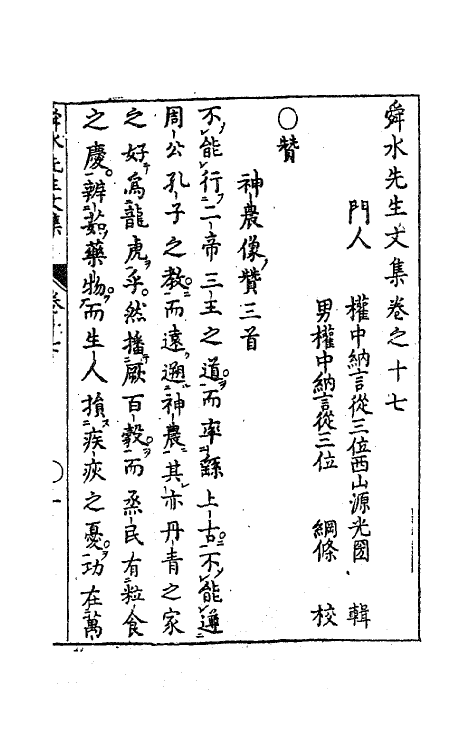 舜水先生文集卷之十七
門人 權中納言從三位西山源光圀 輯
男權中納言從三位 綱條 校
○贊
神農像贊三首
不能行二帝三王之道而率繇上古不能遵
周公孔子之教而遠遡神農其亦丹青之家
之好爲龍虎乎然播厥百穀而烝民有粒食
之慶辨茹藥物而生人損疾疢之憂功在萬
舜水先生文集 卷十七 ○一